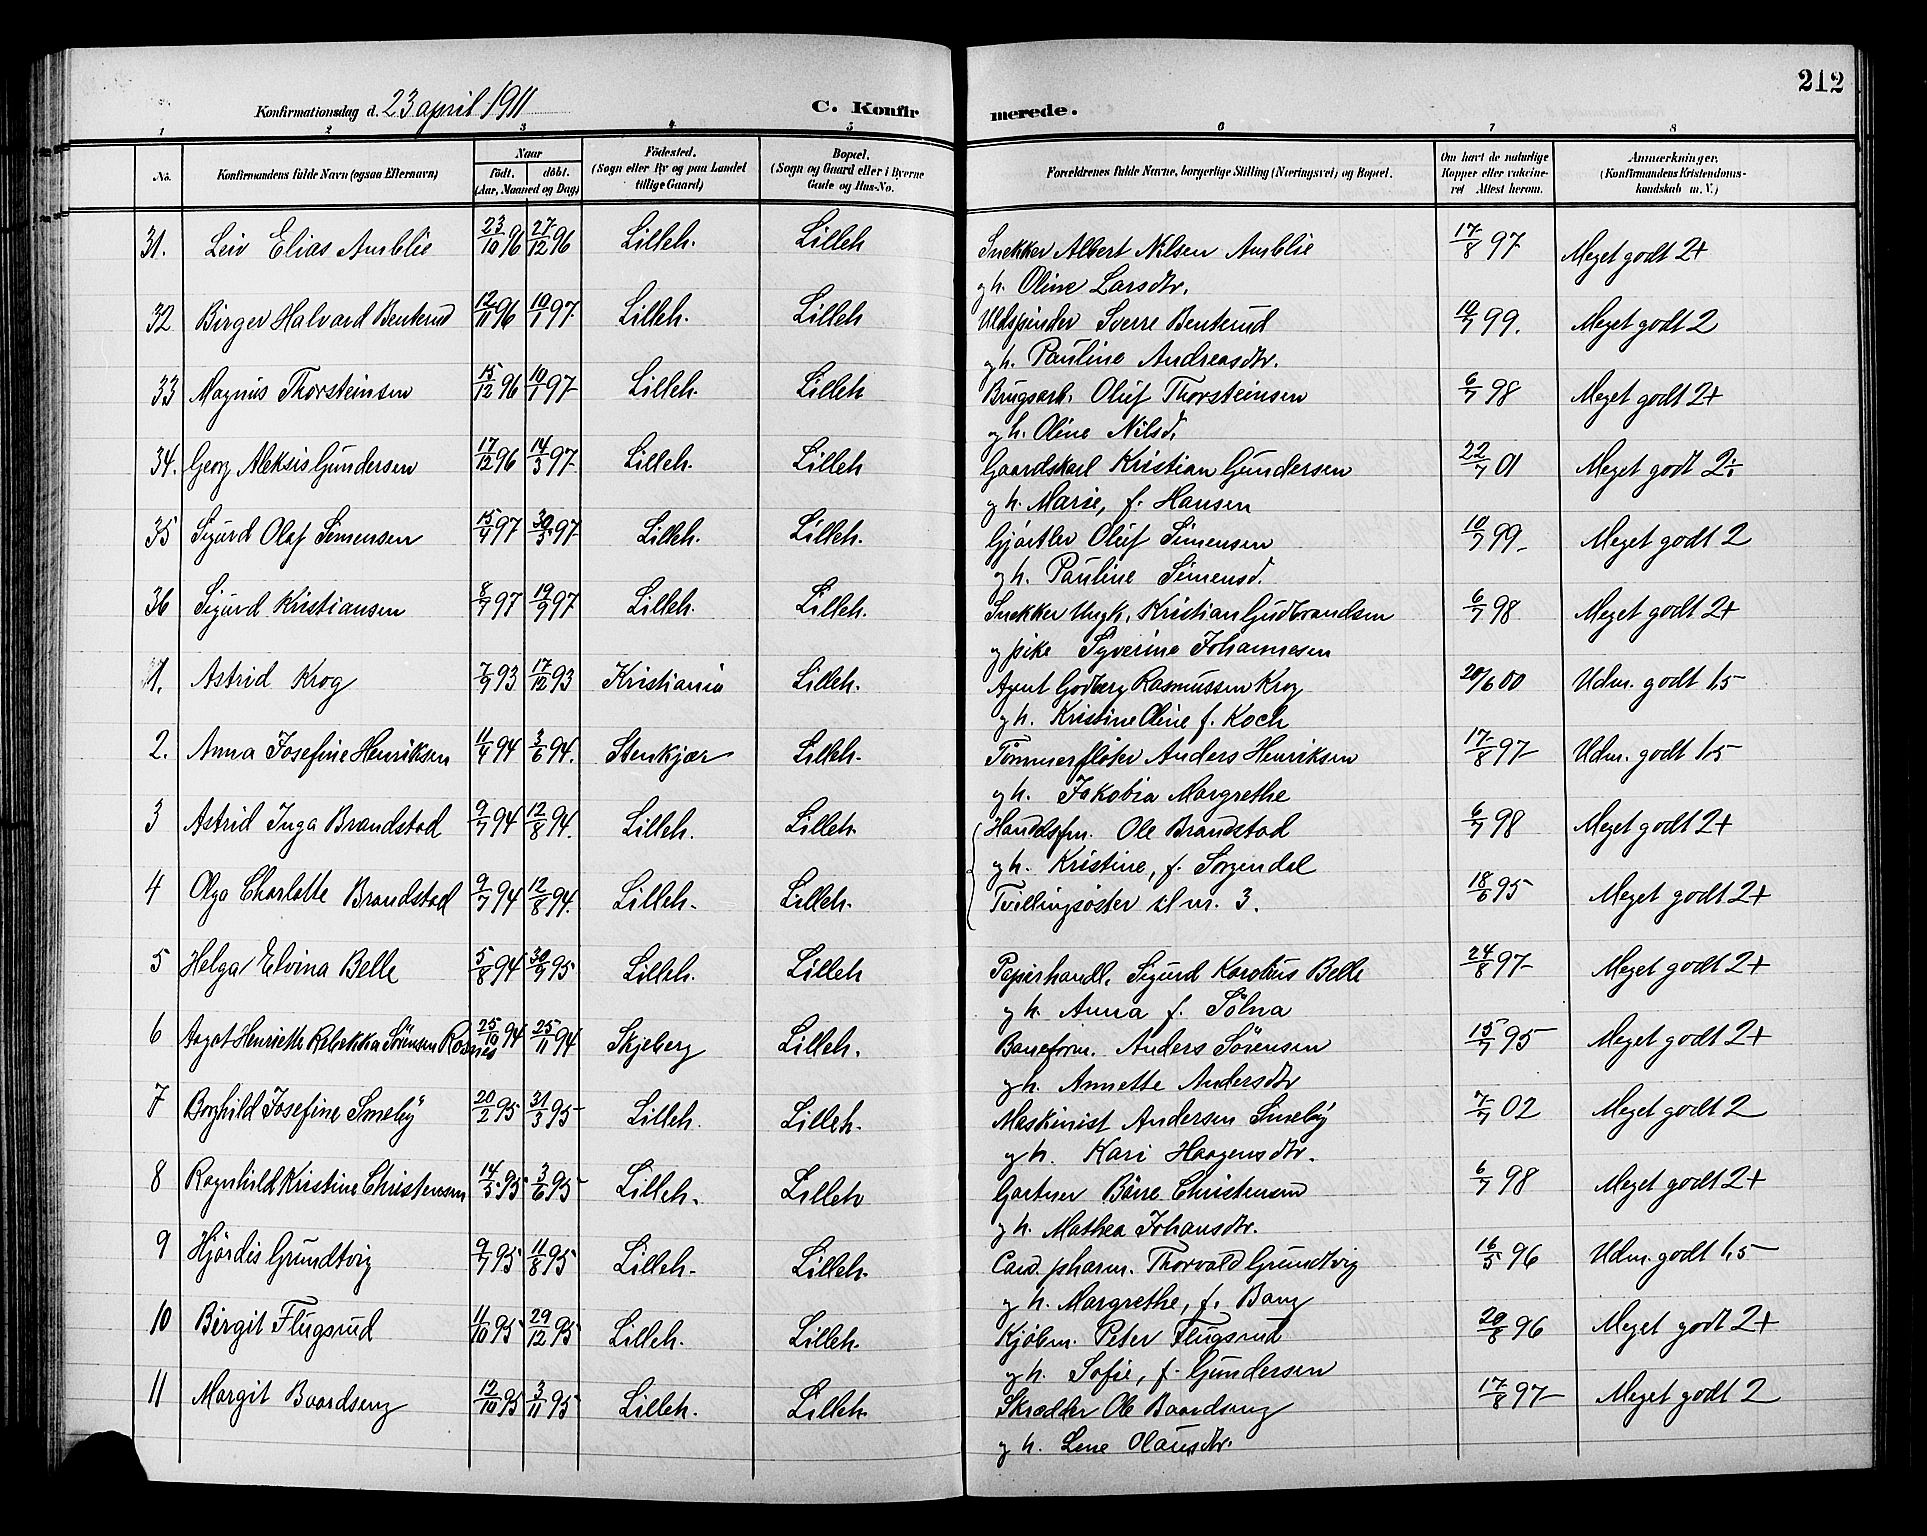 212
Konfirmationsdag d. 23 april 1911
C. Konfirmerede.
1 2 3 4 5 6 7 8
No.
Konfirmandens fulde Navn (ogsaa Efternavn)
Naar
født. døbt.
(Aar, Maaned og Dag)
Fødested.
(Sogn eller By og paa Landet
tillige Gaard)
Bopæl.
(Sogn og Gaard eller i Byerne
Gade og Hus-No.
Forældrenes fulde Navne, borgerlige Stilling (Næringsvei) og Bopæl.
Om havt de naturlige
Kopper eller vaccine-
ret Attest herom.
Anmærkninger.
(Konfirmandens Kristendoms-
kundskab m. V.)
31. Leiv Elias Amblie 23/10 96 27/12 96 Lilleh. Lilleh Snekker Albert Nilsen Amblie 17/8 97 Meget godt 2+
og h. Oline Larsdtr.
32 Birger Halvard Benterud 12/11 96 10/1 97 Lilleh. Lilleh Uldspinder Sverre Benterud 10/7 99. Meget godt 2
og h. Pauline Andreasdtr.
33 Magnus Thorsteinsen 15/12 96 10/1 97 Lilleh. Lilleh Brugsarb. Oluf Thorsteinsen 6/7 98 Meget godt 2+
og h. Oline Nilsd.
34. Georg Aleksis Gundersen 17/12 96 14/3 97 Lilleh. Lilleh Gaardskarl Kristian Gundersen 22/7 01 Meget godt 2÷
og h. Marie, f. Hansen
35 Sigurd Olaf Simensen 15/4 97 30/5 97 Lilleh. Lilleh. Gjørtler Oluf Simensen 10/7 99 Meget godt 2
og h. Pauline Simensd.
36 Sigurd Kristiansen 8/7 97 19/9 97 Lilleh. Lilleh. Snekker Ungk. Kristian Gudbrandsen 6/7 98 Meget godt 2+
og pike Syverine Johannesen
1. Astrid Krog 7/9 93 17/12 93 Kristiania Lilleh. Agent Godberg Rasmussen Krog 20/6 00 Udm. godt 1,5
og h. Kristine Oline f. Koch
2. Anna Josefine Henriksen 11/4 94 3/6 94. Stenkjær Lilleh. Tømmerfløter Anders Henriksen 17/8 97 Udm. godt 1,5
og h. Jakobia Margrethe
3 Astrid Inga Brandstad 9/7 94 12/8 94. Lilleh. Lilleh. Handelsfm. Ole Brandstad 6/7 98 Meget godt 2+
og h. Kristine, f. Sorgendal
4 Olga Charlotte Brandstad 9/7 94 12/8 94. Lilleh. Lilleh. Tvillingsøster til nr. 3. 18/6 95 Meget godt 2+
5 Helga Elvina Belle 5/8 94 30/9 95 Lilleh. Lilleh Papirhandl. Sigurd Karolius Belle 24/8 97 Meget godt 2+
og h. Anna f. Sølna
6 Aagot Henriette Rebekka Sørensen Rosnes 25/10 94 25/11 94 Skjeberg Lilleh. Baneform. Anders Sørensen 15/7 95 Meget godt 2+
og h. Annette Andersdtr
7 Borghild Josefine Smeby 20/2 95 31/3 95 Lilleh. Lilleh. Maskinist Andersen Smeby 7/7 02 Meget godt 2
og h. Kari Haagensdtr.
8 Ragnhild Kristine Christensen 14/3 95 3/6 95 Lilleh. Lilleh Gartner Børre Christensen 6/7 98 Meget godt 2+
og h. Mathea Johansdtr.
9 Hjørdis Grundtvig 9/7 95 11/8 95 Lilleh. Lilleh. Cand. pharm. Thorvald Grundtvig 16/5 96 Udm. godt 1,5
og h. Margrethe, f. Bang
10 Birgit Flugsrud 11/10 95 29/12 95 Lilleh. Lilleh. Kjøbm. Peter Flugsrud 20/8 96 Meget godt 2+
og h. Sofie, f. Gundersen
11 Margit Baardseng 12/10 95 3/11 95 Lilleh. Lilleh. Skrædder Ole Baardseng 17/8 97 Meget godt 2
og h. Lene Olausdtr.